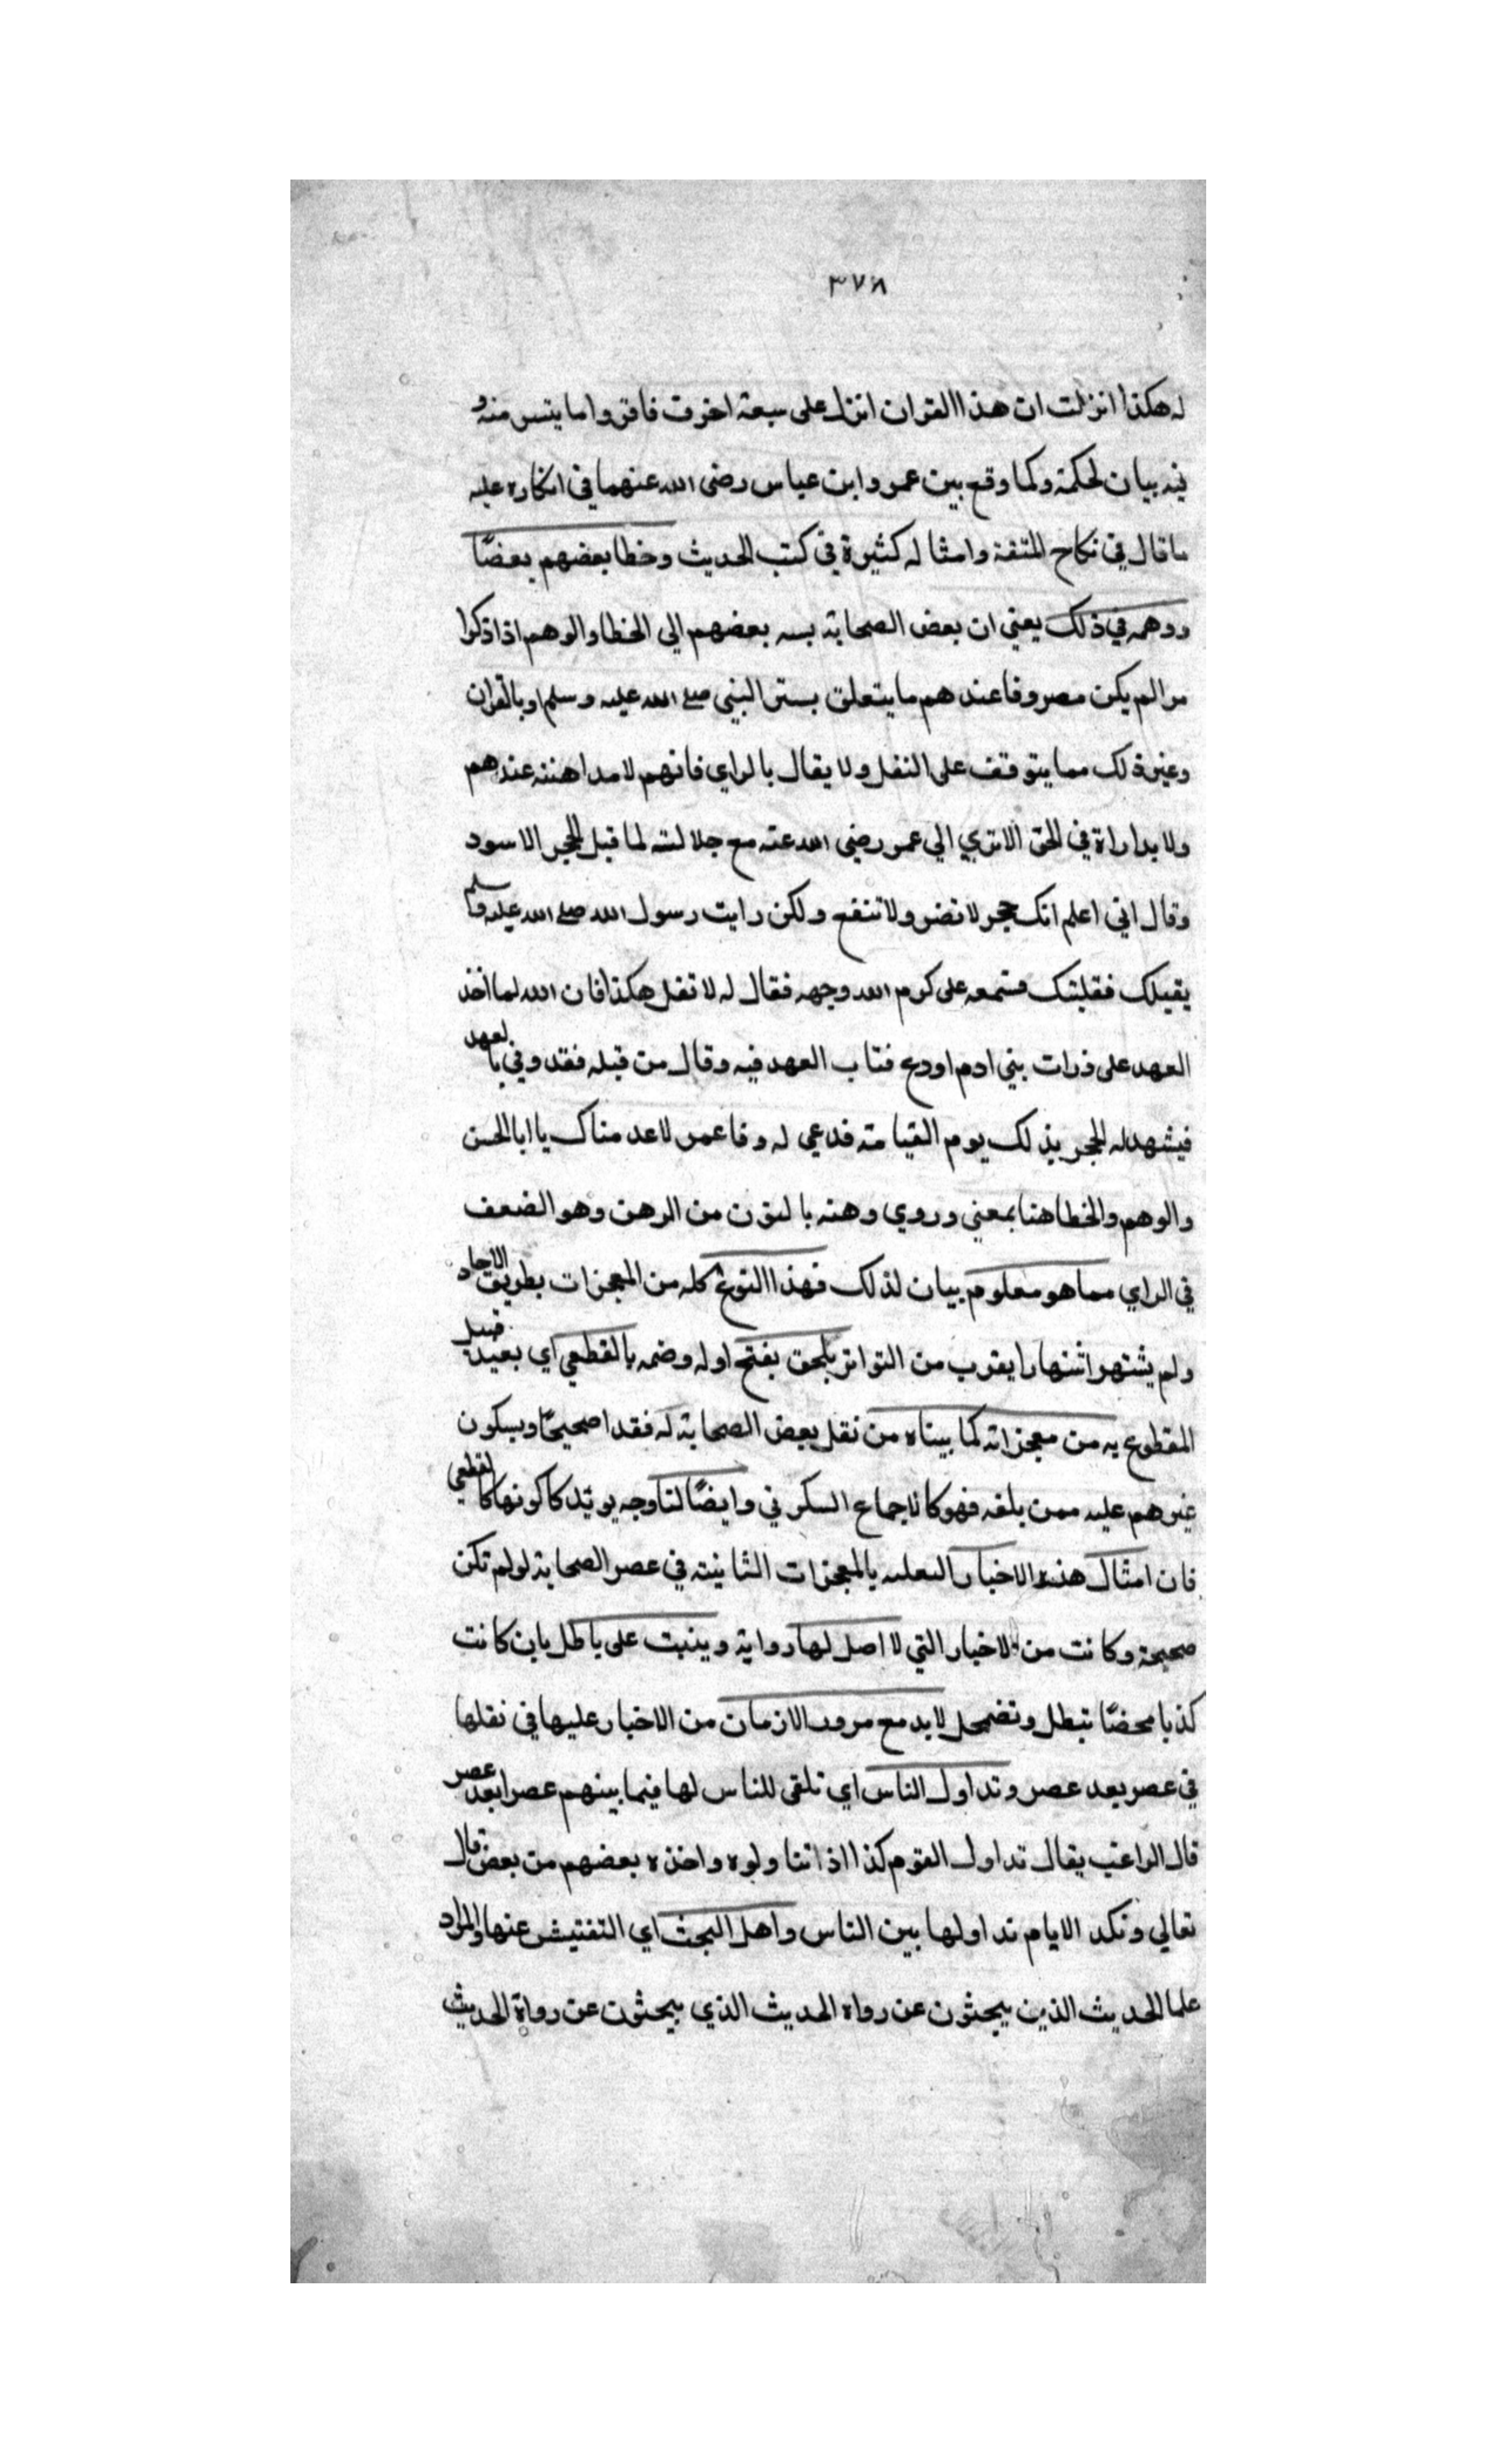 ٣٧٨
له هكذا انزلت ان هذا القران انزل على سبعة احرف فاقروا ما يتسر منه و
فيه بيان لحكمة وكما وقع بين عمر وابن عباس رضى الله عنهما في انكاره عليه
ما قال في نكاح المتعة وامثاله كثيرة في كتب الحديث وخطا بعضهم بعضًا
ووهمه في ذلك يعني ان بعض الصحابة بسه بعضهم الي الخطا والوهم اذا ذكروا
مرا لم يكن معروفا عندهم ما يتعلق بستر النبي صلى الله عليه وسلم او بالقران
وغير ذلك مما يتوقف على النقل ولا يقال بالراي فانهم لا مداهنة عندهم
ولا بداراة في الحق الا تري الي عمر رضي الله عنه مع جلالته لما قبل الحجر الاسود
وقال اني اعلم انك حجر لا تضر ولا تنفع ولكن رايت رسول الله صلى الله عليه وسلم
يقبلك فقبلتك فسمعه على كرم الله وجهه فقال له لا تقل هكذا فان الله لما اخذ
العهد على ذرات بني ادم اودع فتاب العهد فيه وقال من قبله فقد وفي بالعهد
فيشهد له الحجر بذلك يوم القيامة فدعي له وقا عمر لاعدمناك يا ابا الحسن
والوهم والخطا هنا بمعني وروي وهنه بالنون من الوهن وهو الضعف
في الراي مما هو معلوم بيان لذلك فهذا النوع كله من المعجزات بطريق الاحاد
ولم يشتهر اشتهارا يقرب من التواتر يلحق بفتح اوله وضمه بالقطعي اي بعيد قبيل
المقطوع به من معجزاته كما بيناه من نقل بعض الصحابة له فقدا صحيحًا وبسكون
غيرهم عليه ممن بلغه فهو كالاجماع السكوتي وايضًا لنا وجه يويد كاكونها كالقطعي
فان امثال هذه الاخبار المعلمه بالمعجزات الثابتة في عصر الصحابة لو لم تكن
صحيحة وكانت من الاخبار التي لا اصل لها رواية وينبت على باطل بان كانت
كذبا محضًا تبطل وتضمحل لا بد مع مرور الازمان من الاخبار عليها في نقلها
في عصر بعد عصر وتداول الناس اي تلقي للناس لها فيما بينهم عصرا بعد عصر
قال الراغب يقال تداول القوم كذا اذا تناولوه واخذه بعضهم من بعض قال
تعالي وتكد الايام نداولها بين الناس واهل البحث اي التفتيش عنها والمراد
علما الحديث الذين يبحثون عن رواه الحديث الذي يبحثون عن رواة الحديث